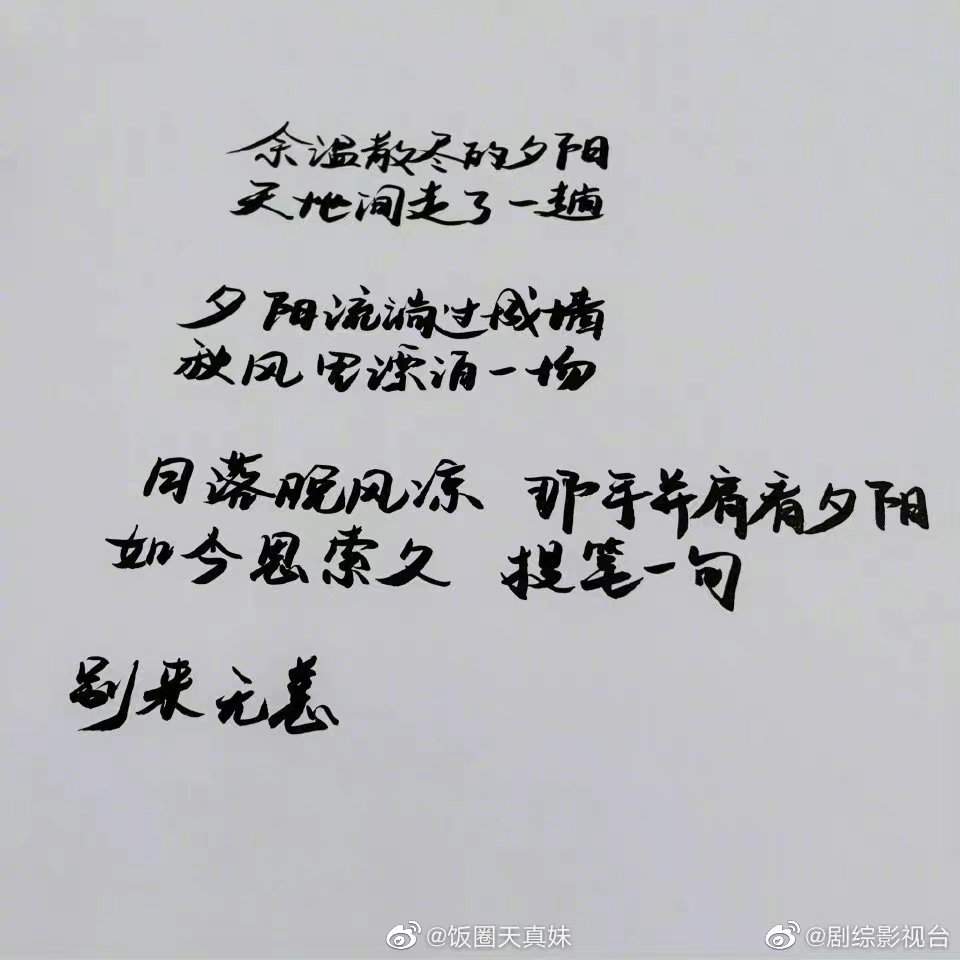 余温散尽的夕阳
天地间走了一趟
夕阳流淌过城墙
秋风里漂泊一场
日落晚风凉 那年并肩看夕阳
如今思索久 提笔一句
别来无恙
@饭圈天真妹
@剧综影视台